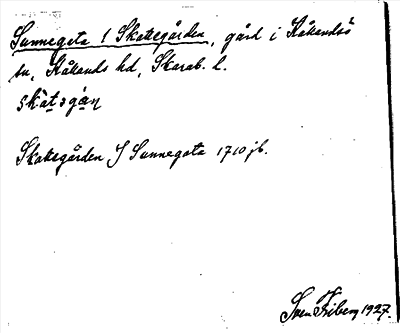 Sunnegeta 1 Skattegården, gård i Kållandsö
sn, Kållands hd, Skarab. l.
skat̀sgán
Skattegården I Sunnegata 1710 jb.
Sven Friberg 1927.